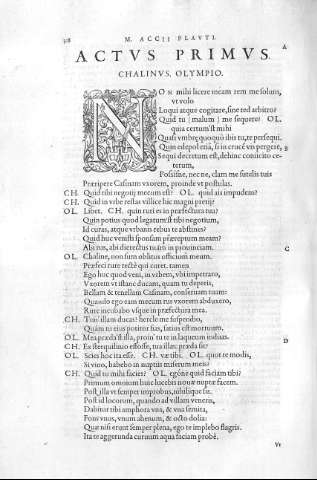 M. ACCII PLAVTI.
A
ACTVS PRIMVS.
CHALINVS, OLYMPIO.
NON mihi licere meam rem me solum,
vt volo
Loqui atque cogitare, sine ted arbitro?
Quid tu (malum) me sequere? OL.
quia certum'st mihi
Quasi vmbra, quoquò ibis tu, te persequi.
Quin edepol etiã, si in crucẽ vis pergere, B
Sequi decretum est, dehinc conijcito ce-
terum,
Possisne, nec ne, clam me sutelis tuis
Præripere Casinam vxorem, proinde vt postulas.
CH. Quid tibi negotij mecum est? OL. quid ais impudens?
CH. Quid in vrbe reptas villice
OL. Libet. CH. quin ruri es in præfectura tua?
Quin potius quod legatum'st tibi negotium,
Id curas, atque vrbanis rebus te abstines?
Quid huc venisti sponsam præreptum meam?
Abi rus, abi dierectus tuam in prouinciam. C
OL. Chaline, non sum oblitus officium meum.
Præfeci rure rectè qui curet. tamen
Ego huc quod veni, in vrbem, vbi impetraro,
Vxorem vt istanc ducam, quam tu deperis,
Bellam & tenellam Casinam, conseruam tuam:
Quando ego eam mecum rus vxorem abduxero,
Rure incubabo vsque in præfectura mea.
CH. Tun' illam ducas? hercle me suspendio,
Quàm tu eius potitor fias, satius est mortuum.
OL. Mea præda'st illa, proin' tu te in laqueum induas.
CH. Ex sterquilinio effosse, tua illæc præda sit? D
OL. Scies hoc ita esse. CH. væ tibi. OL. quot te modis,
Si viuo, habebo in nuptiis miserum meis?
CH. Quid tu mihi facies? OL. egóne quid faciam tibi?
Primum omnium huic lucebis nouæ nuptæ facem.
Post, illa vt semper improbus, nihilique sis.
Post id locorum, quando ad villam veneris,
Dabitur tibi amphora vna, & vna semita,
Fons vnus, vnum ahenum, & octo dolia:
Quæ nisi erunt semper plena, ego te implebo flagris.
Ita te aggerunda curuum aqua faciam probè,
Vt